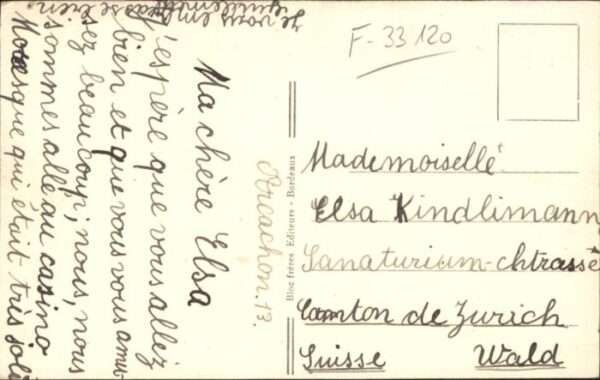 Ma chère Elsa
j'espère que vous allez
bien et que vous vous amu-
sez beaucoup, nous, nous
sommes allé au casino
Moresque qui était très joli
Je vous em
Arcachon. 13.
Bloc frères, Editeurs - Bordeaux
F-33120
Mademoiselle
Elsa Kindlimann
Sanaturium-chtrasse
Canton de Zurich
Suisse Wald